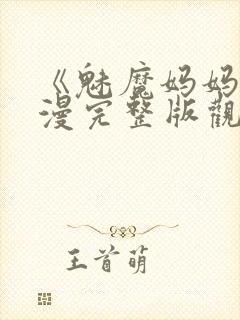 《魅魔妈妈
漫完整版觀
王首萌